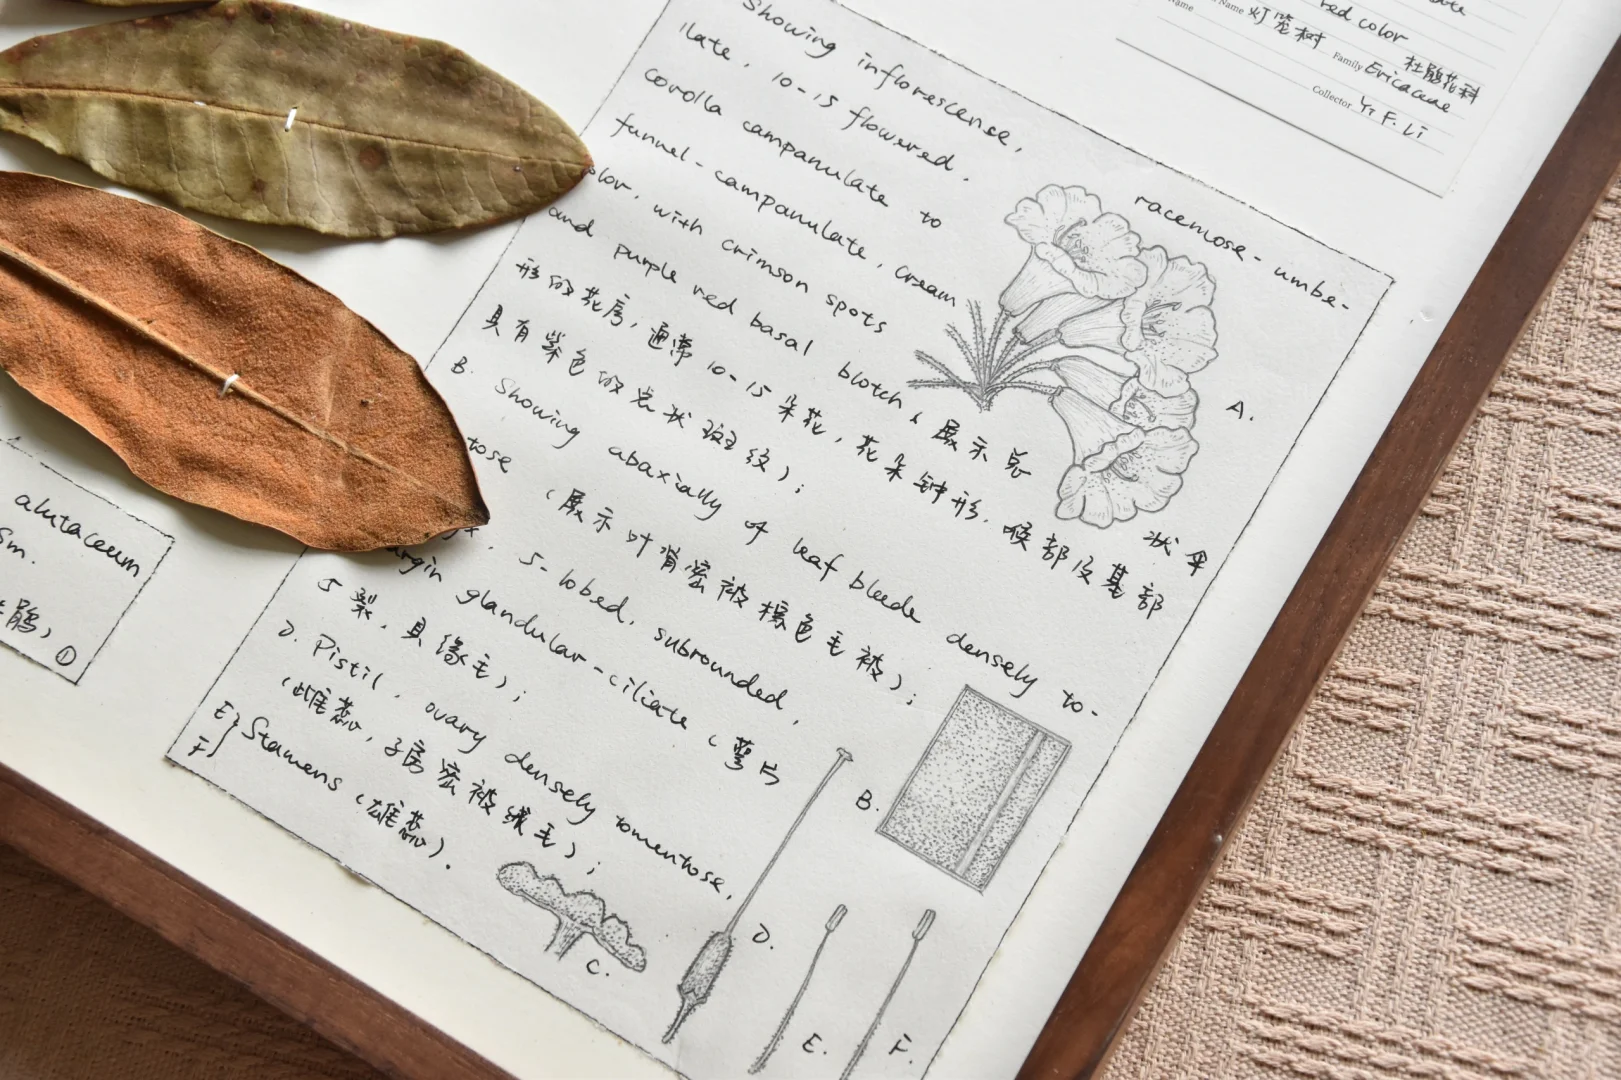 Showing inflorescense, racemose-umbe-
llate, 10-15 flowered.
corolla campanulate to
funnel-campanulate, cream
color, with crimson spots
and purple red basal blotch (展示总状伞
形的花房, 通常10-15朵花, 花朵钟形, 喉部及基部
具有紫色的点状斑纹);
B. Showing abaxially of leaf blede densely to-
tose (展示叶背密被橡色毛被);
5-lobed, subrounded,
margin glandular-ciliate (萼片
5裂, 具缘毛);
D. Pistil, ovary densely tomentose,
(雌蕊, 子房密被绒毛);
E} Stamens (雄蕊).
F
A.
B.
C.
D.
E.
F.
alutaceum
Sm.
鹃)
①
red color
Name 灯笼树
Name
Family Ericaceae 杜鹃花科
Collector Y. F. Li